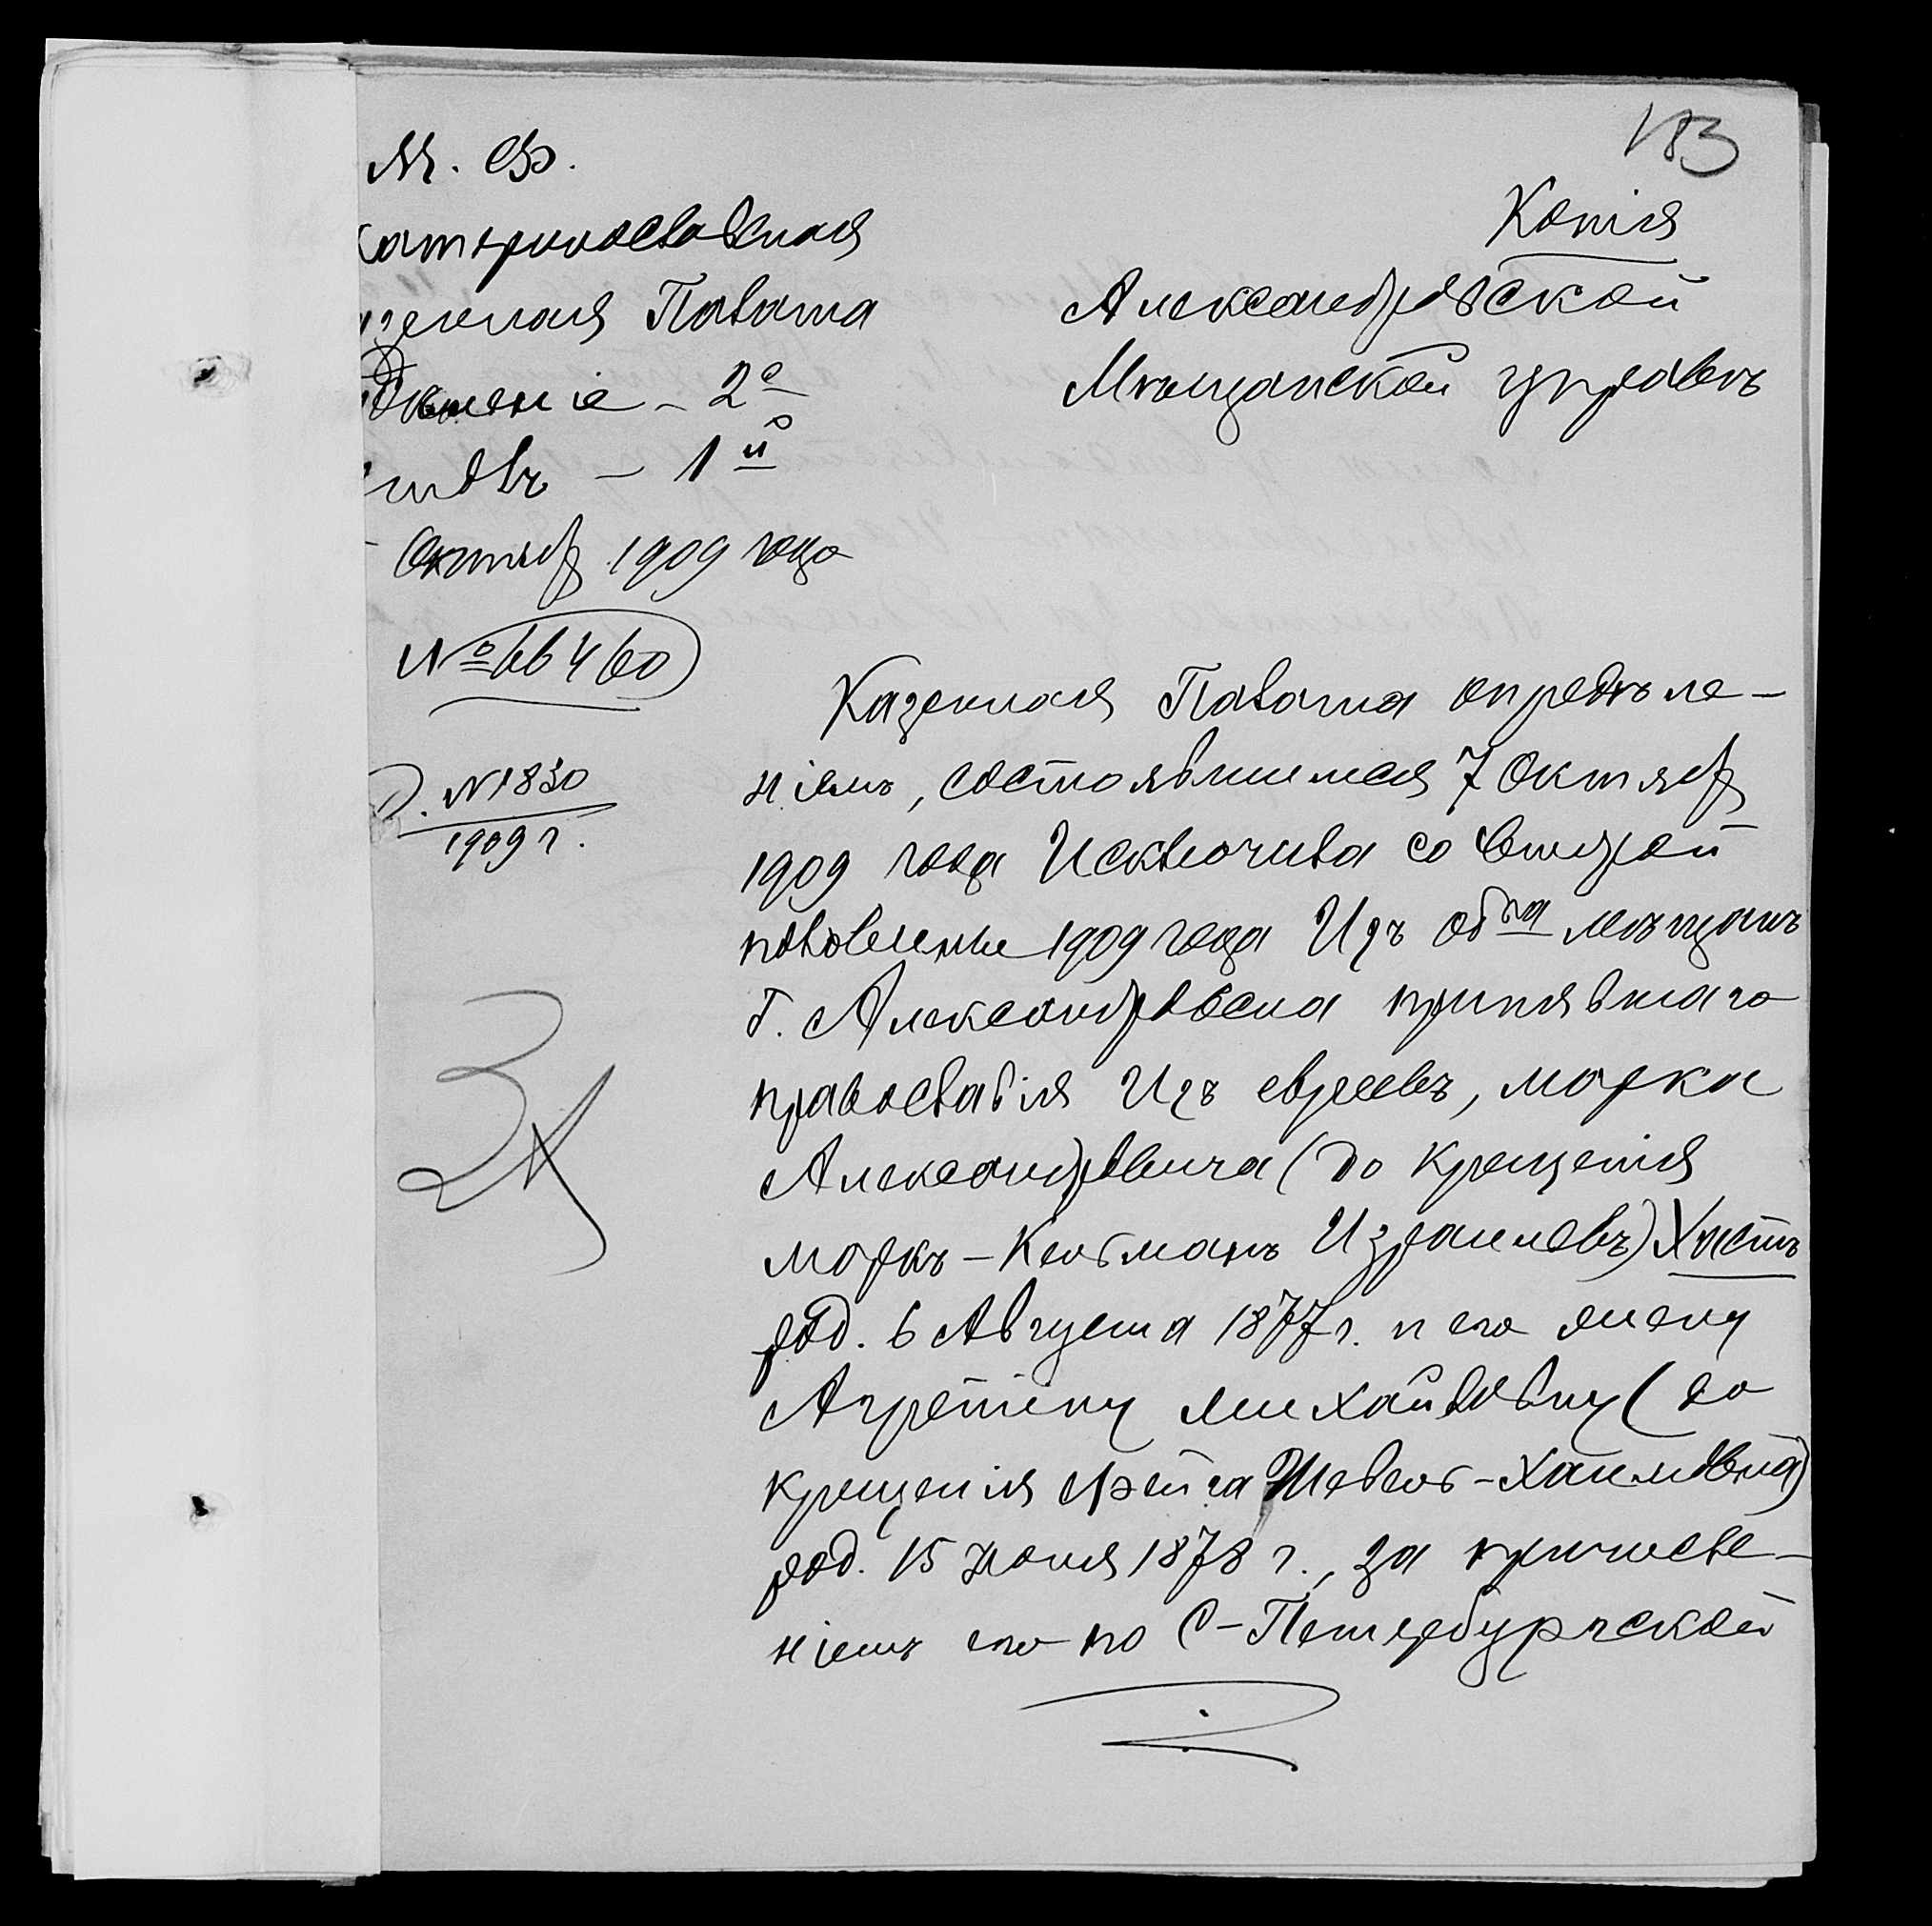 183
М. Ф.
катеринославская
азенная Палата
Отдѣленіе – 2е
столъ – 1й
Октябр 1909 года
№ 66460
Д. № 1830
1909 г.
Копія
Александровской
Мѣщанской управѣ
Казенная Палата опредѣле-
ніемъ, состоявшимся 7 Октябр
1909 года Исключила со второй
половины 1909 года Изъ обва мѣщанъ
г. Александровска принявшаго
православія Изъ евреевъ, Марка
Александровича (до крещенія
Маркъ-Кельманъ Израилевъ) Хастъ
род. 6 Августа 1877 г. и его жену
Агрепину Михайловну (до
крещенія Фейга Шевель-Хаимовна)
род. 15 Июня 1878 г., за причисле-
ніемъ его по С-Петербургской